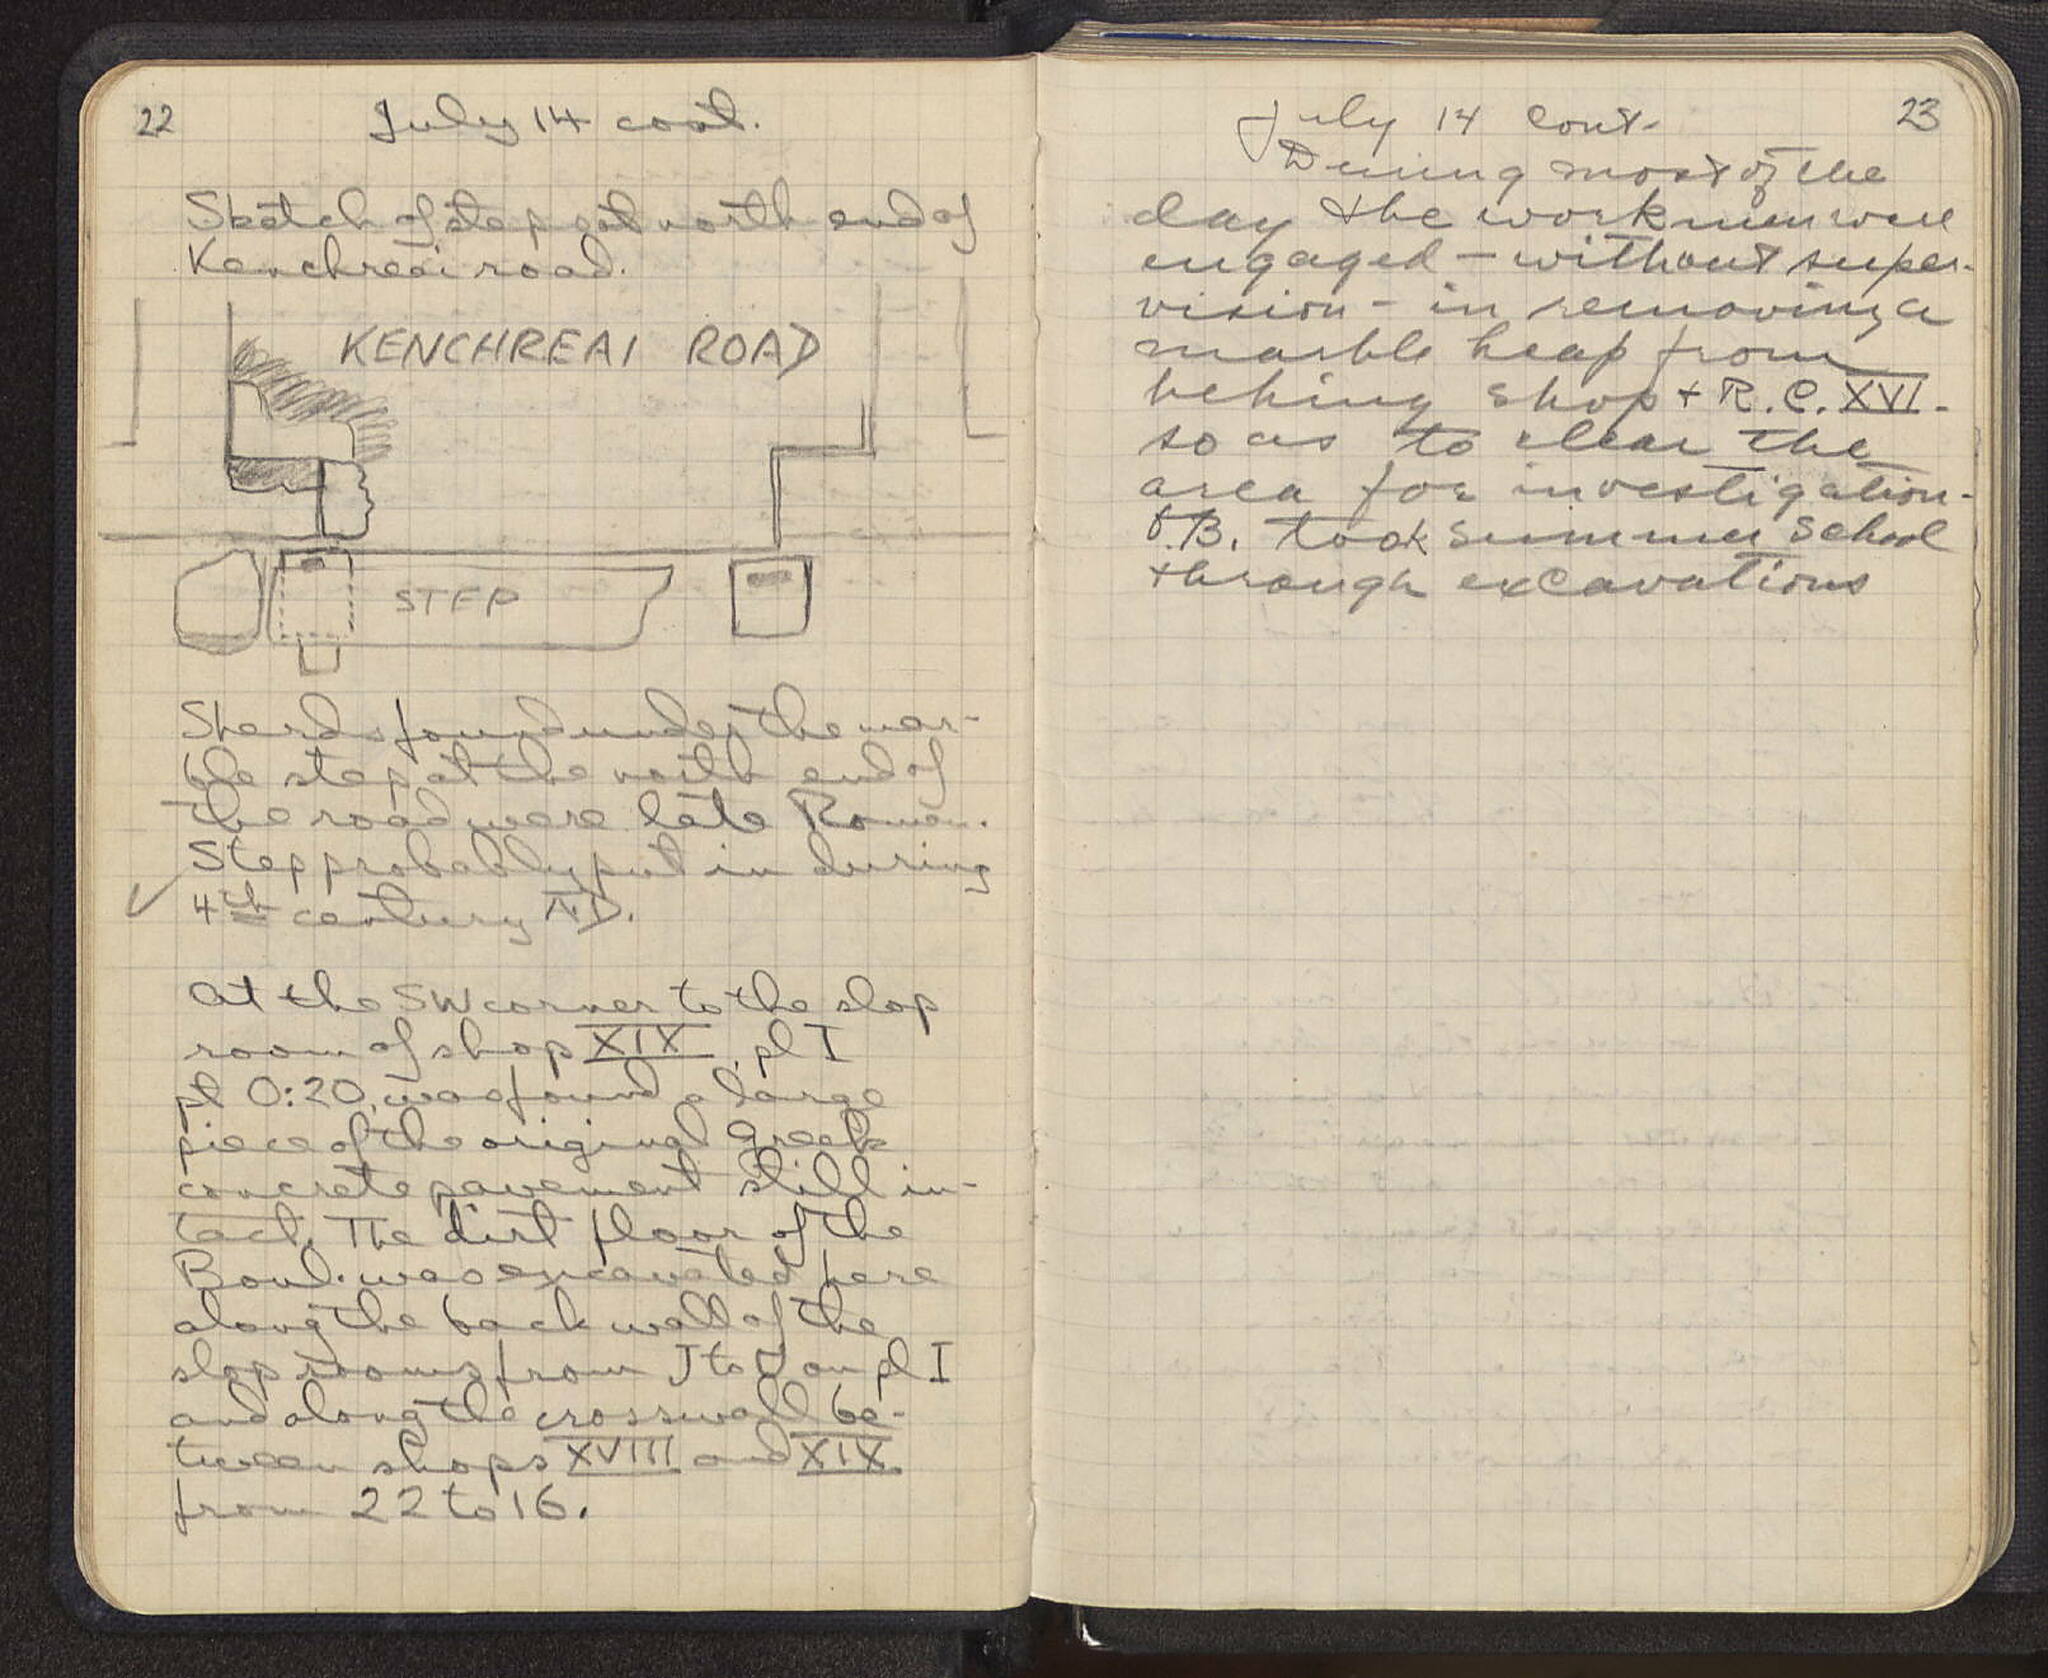 22
July 14 cont.
Sketch of step at north end of
Kenchreai road.
KENCHREAI ROAD
STEP
Sherds found under the mar-
ble step at the north end of
the road were late Roman.
Step probably put in during
4th century AD.
At the SW corner to the slop
room of shop XIX, pl I
pt O:20, was found a large
piece of the original Greek
concrete pavement still in-
tact. The dirt floor of the
Boul. was excavated here
along the back wall of the
slop rooms from J to O on pl I
and along the crosswall be-
tween shops XVIII and XIX
from 22 to 16.
23
July 14 cont.
During most of the
day the workmen were
engaged - without super-
vision - in removing a
marble heap from
behing shop + R.C. XVI -
so as to clear the
area for investigation -
O.B. took summer School
through excavations